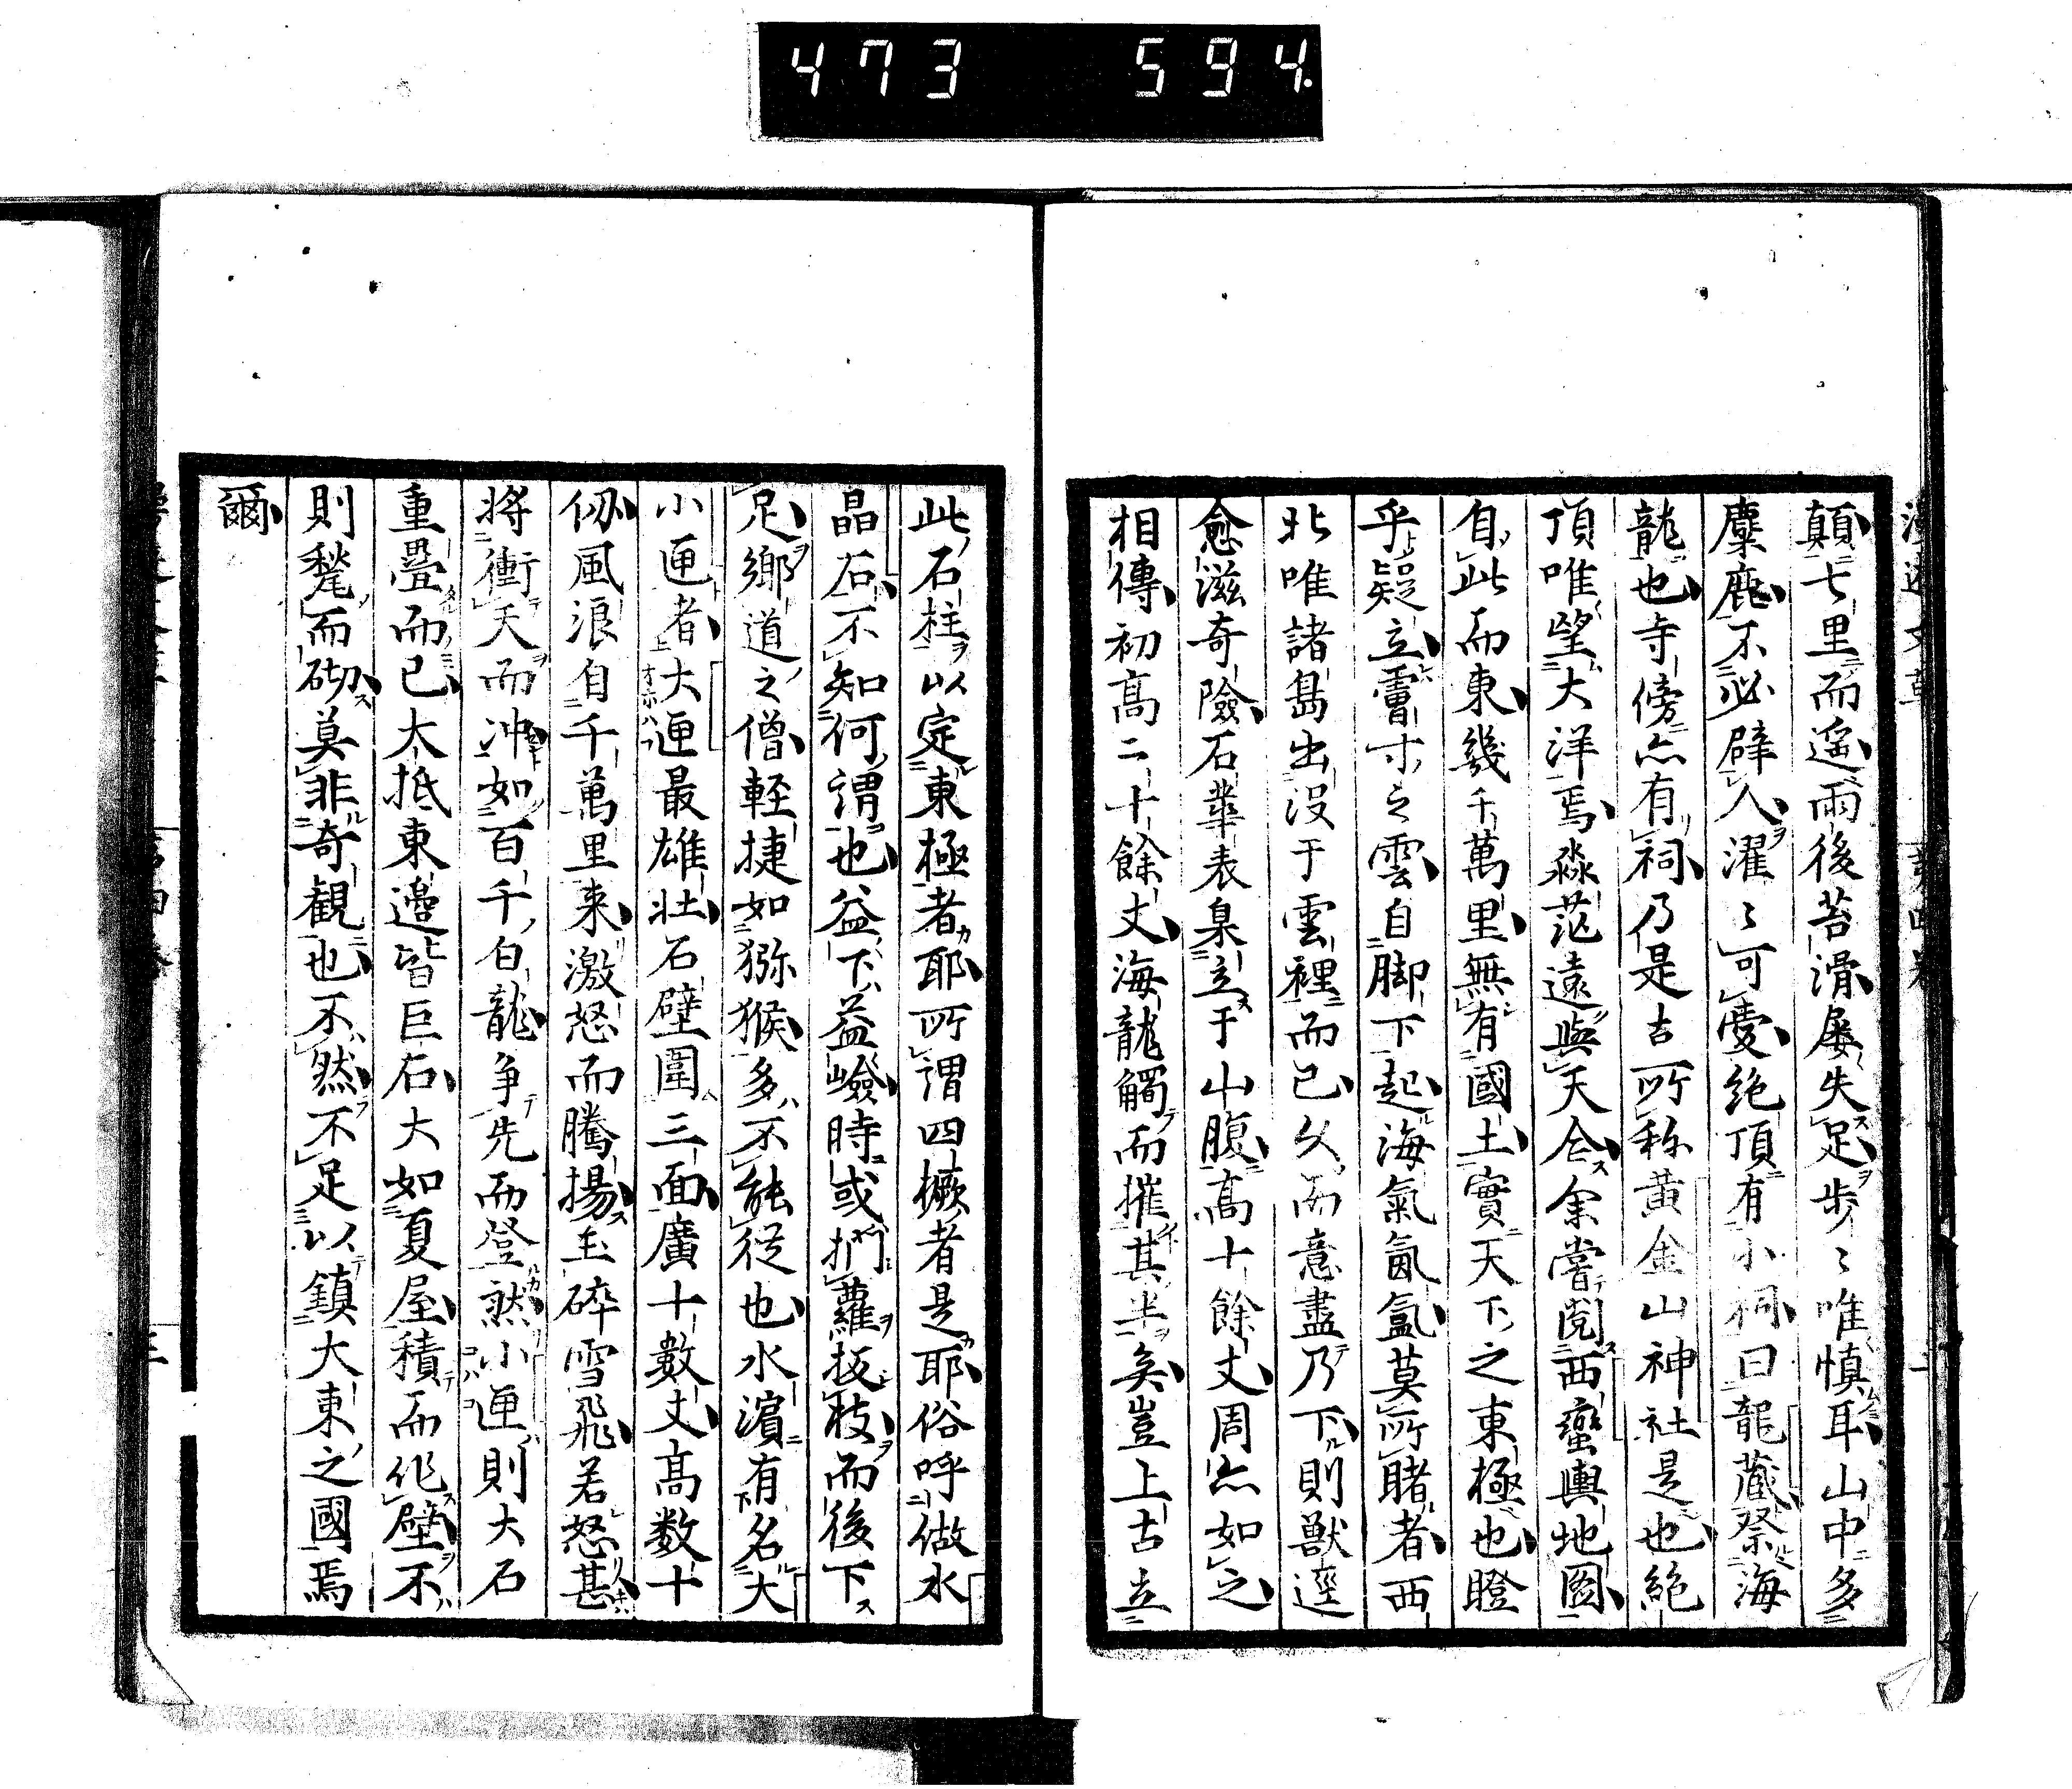 473 594.
顛七里而遥雨後苔滑屡失足歩〻唯慎耳山中多
麋鹿不必辟人濯〻可愛絶頂有小祠曰龍蔵祭海
龍也寺傍亦有祠乃是古所称黄金山神社是也絶
頂唯望大洋焉淼茫遠與天仝余嘗閲西蠻輿地圖
自此而東幾千萬里無有國土實天下之東極也瞪
乎凝立膚寸之雲自脚下起海氣氤氲莫所睹者西
北唯諸島出没于雲裡而已久而意盡乃下則獣逕
愈滋奇險石華表臬立于山腹高十餘丈周亦如之
相傳初高二十餘丈海龍觸而摧其半矣豈上古立
此石柱以定東極者耶所謂四橛者是耶俗呼做水
晶石不知何謂也益下益嶮時或捫蘿扳枝而後下
足郷道之僧軽捷如猕猴多不能従也水濵有名大
小匣者大匣最雄壮石壁圍三面廣十數丈高数十
仭風浪自千萬里来激怒而騰揚玉碎雪飛若怒甚
將衝天而冲如百千白龍争先而登然小匣則大石
重疊而已大抵東邉皆巨石大如夏屋積而作壁不
則甃而砌莫非奇観也不然不足以鎮大東之國焉
爾